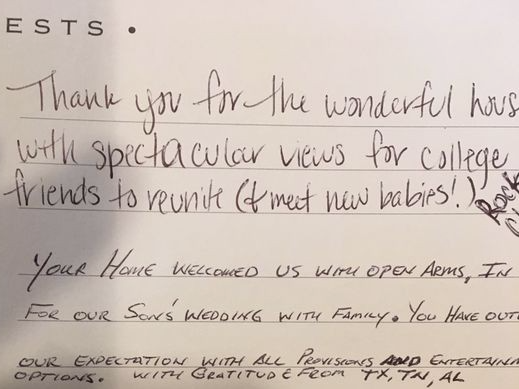 ESTS •
Thank you for the wonderful hous
with spectacular views for college
friends to reunite (& meet new babies!)
Rock
YOUR HOME WELCOMED US WITH OPEN ARMS, IN
FOR OUR SON'S WEDDING WITH FAMILY. YOU HAVE OUT
OUR EXPECTATION WITH ALL PROVISIONS AND ENTERTAINM
OPTIONS. WITH GRATITUDE FROM TX, TN, AL